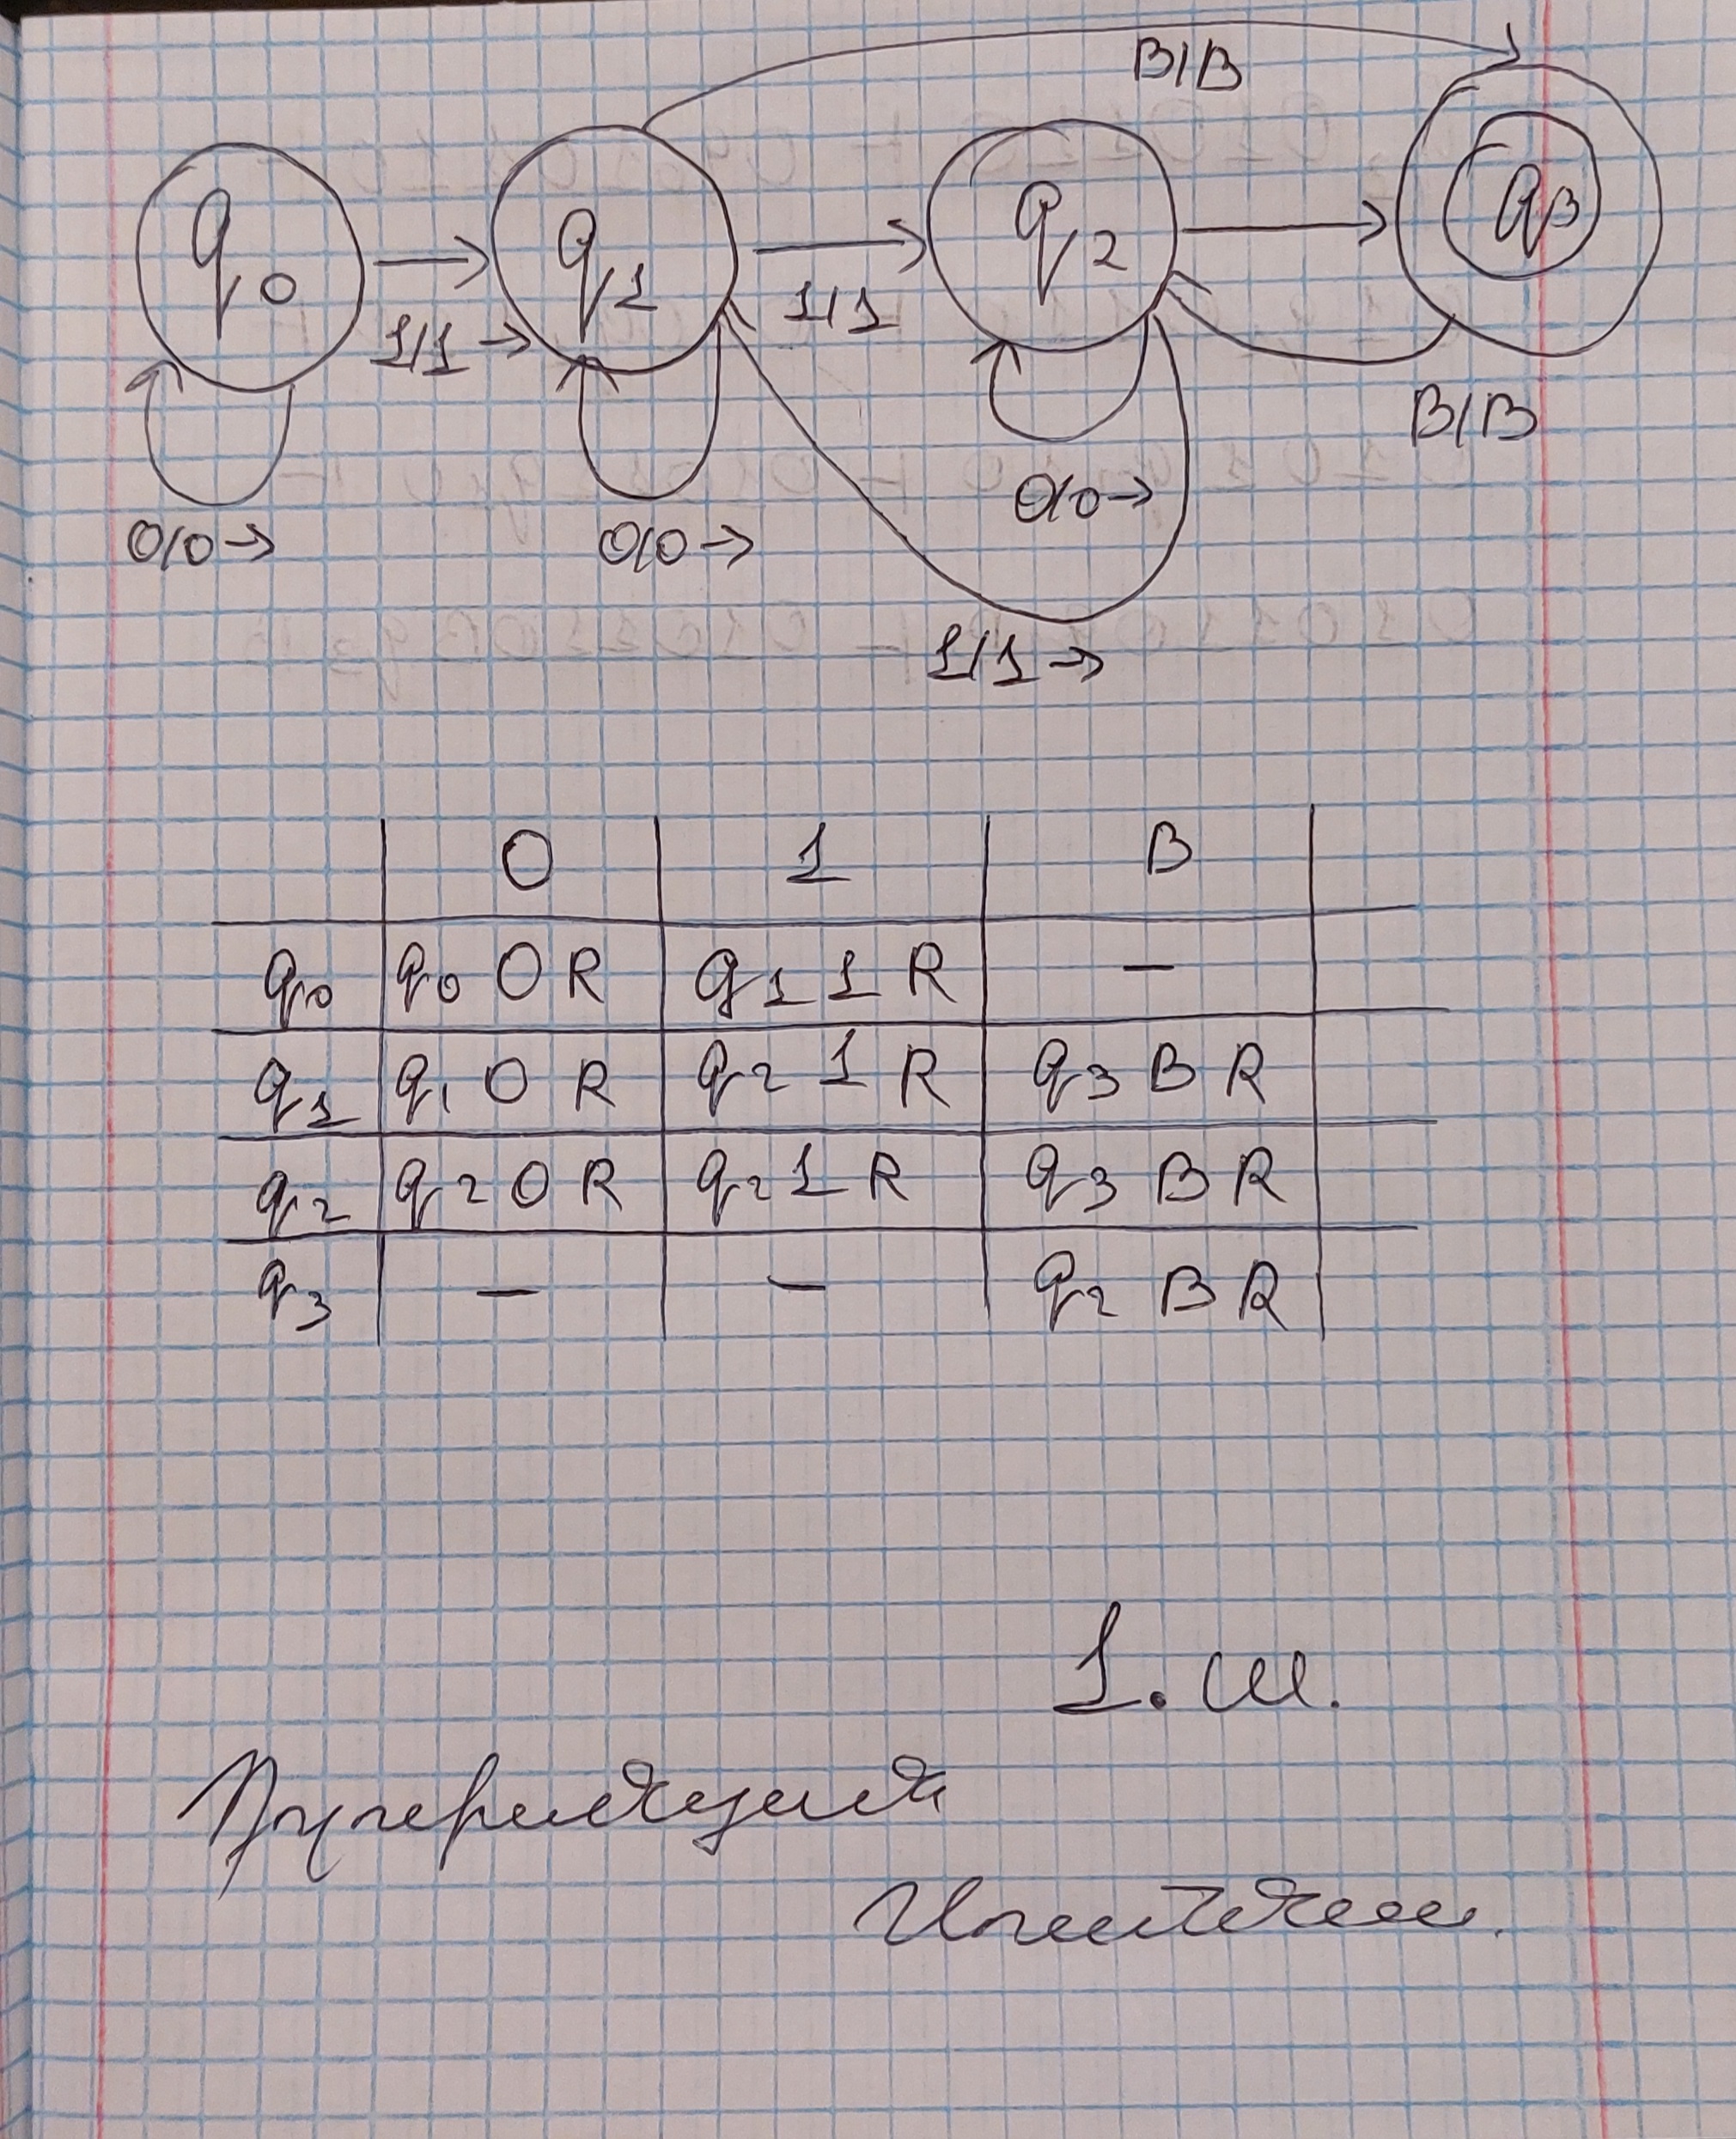 B/B
q0 q1 q2 q3
1/1 → 1/1
B/B
0/0→ 0/0→ 0/0→
1/1→
0 1 B
q0 q0 0 R q1 1 R —
q1 q1 0 R q2 1 R q3 B R
q2 q2 0 R q2 1 R q3 B R
q3 — — q2 B R